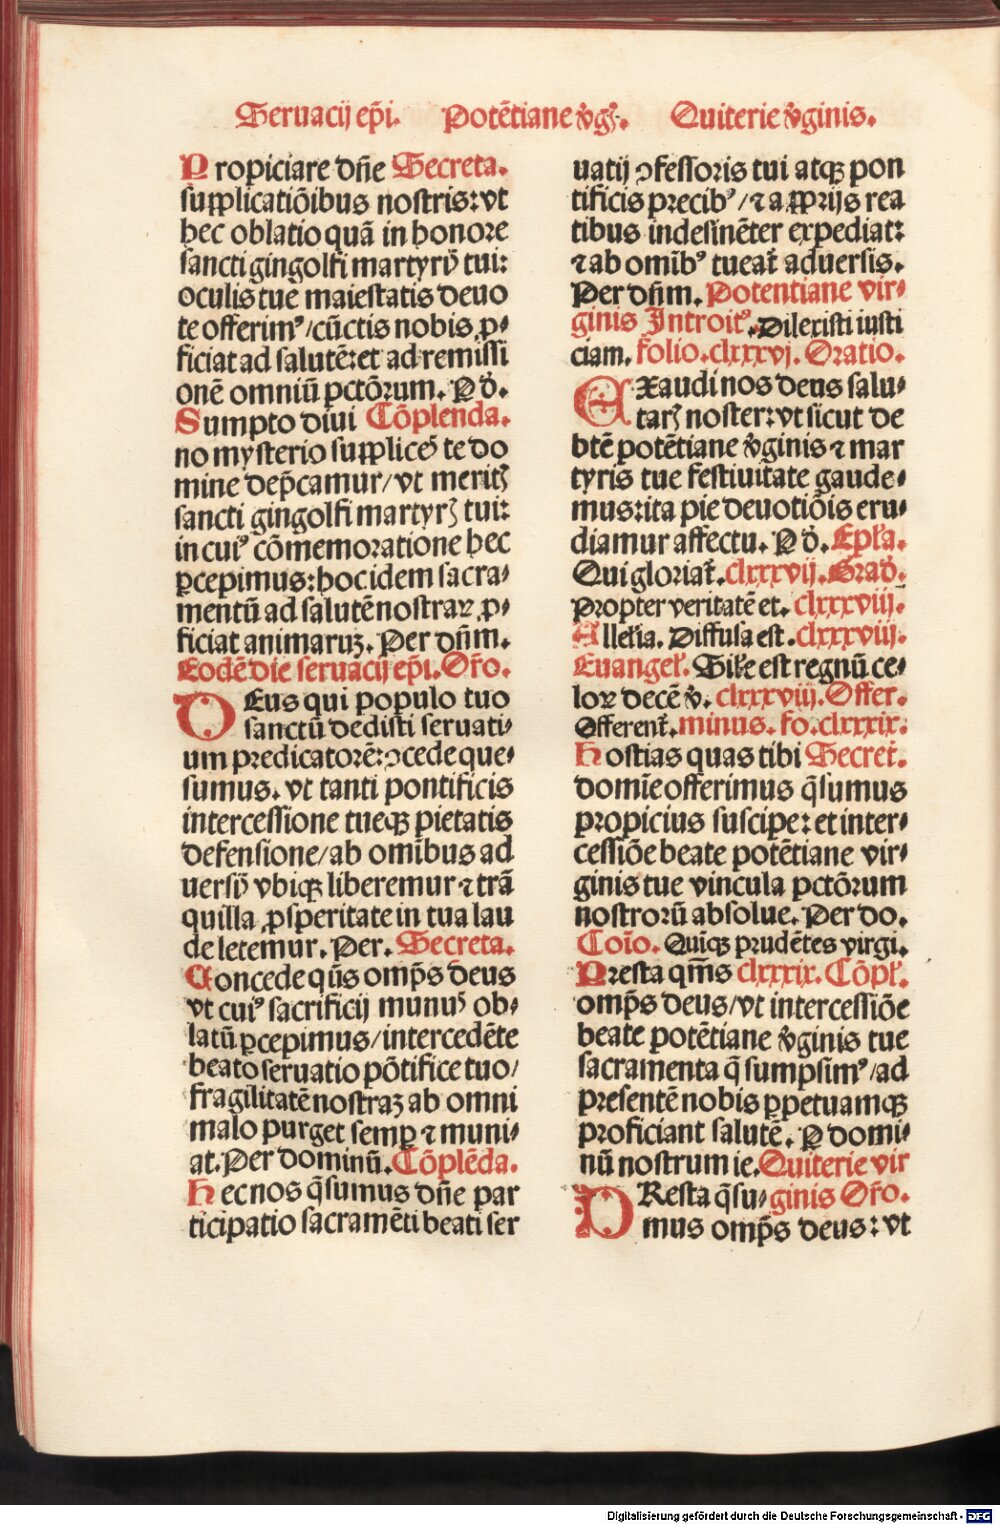 Seruacij ep̄i. Potētiane v̓gꝭ. Quiterie v̓ginis.
Propiciare dn̄e Secreta.
supplicatiōibus nostris: vt
hec oblatio quā in honore
sancti gingolfi martyrꝭ tui:
oculis tue maiestatis deuo
te offerimꝰ/cūctis nobis ꝓ⸗
ficiat ad salutē: et ad remissi
onē omniū pctōrum. P d̓.
Sumpto diui Cōplenda.
no mysterio supplices te do
mine dep̄camur/vt meritꝭ
sancti gingolfi martyrꝭ tui:
in cuiꝰ cōmemoratione hec
ꝑcepimus: hoc idem sacra⸗
mentū ad salutē nostraꝝ ꝓ⸗
ficiat animaruꝫ. Per dn̄m.
Eodē die seruacij ep̄i. Or̄o.
DEus qui populo tuo
sanctū dedisti seruati⸗
um predicatorē: ꝯcede que⸗
sumus. vt tanti pontificis
intercessione tueqꝫ pietatis
defensione/ab omībus ad
uersꝭ vbiqꝫ liberemur ⁊ trā
quilla ꝓsperitate in tua lau
de letemur. Per. Secreta.
Concede qūs omp̄s deus
vt cuiꝰ sacrificij munus ob⸗
latū ꝑcepimus/intercedēte
beato seruatio pōtifice tuo/
fragilitatē nostraꝫ ab omni
malo purget semꝑ ⁊ muni⸗
at. Per dominū. Cōplēda.
Hec nos q̄sumus dn̄e par
ticipatio sacramēti beati ser
uatij ꝯfessoris tui atqꝫ pon
tificis precibꝰ/⁊ a ꝓprijs rea
tibus indesinēter expediat:
⁊ ab omībꝰ tueat᷑ aduersis.
Per dn̄m. Potentiane vir⸗
ginis Introitꝰ. Dilexisti iusti
ciam. folio. clxxxvj. Oratio.
EXaudi nos deus salu⸗
tarꝭ noster: vt sicut de
btē potētiane v̓ginis ⁊ mar
tyris tue festiuitate gaude⸗
mus: ita pie deuotiōis eru⸗
diamur affectu. P d̓. Epl̄a.
Qui gloriat᷑. clxxxvij. Grad̓.
Propter veritatē et. clxxxviij.
Allel̓ia. Diffusa est. clxxxviij.
Euangel̓. Sil̓e est regnū ce⸗
loꝝ decē v̓. clxxxviij. Offer.
Offerent᷑. minus. fo. clxxxix.
Hostias quas tibi Secret᷑.
domīe offerimus q̄sumus
propicius suscipe: et inter⸗
cessiōe beate potētiane vir⸗
ginis tue vincula pctōrum
nostrorū absolue. Per do.
Coīo. Quīqꝫ prudētes virgi.
Presta qm̄s clxxxix. Cōpl̓.
omp̄s deus/vt intercessiōe
beate potētiane v̓ginis tue
sacramenta q̄ sumpsimꝰ/ad
presentē nobis ꝑpetuamqꝫ
proficiant salutē. P domi⸗
nū nostrum ie. Quiterie vir
PResta q̄su⸗ginis Or̄o.
mus omp̄s deus: vt
Digitalisierung gefördert durch die Deutsche Forschungsgemeinschaft - DFG